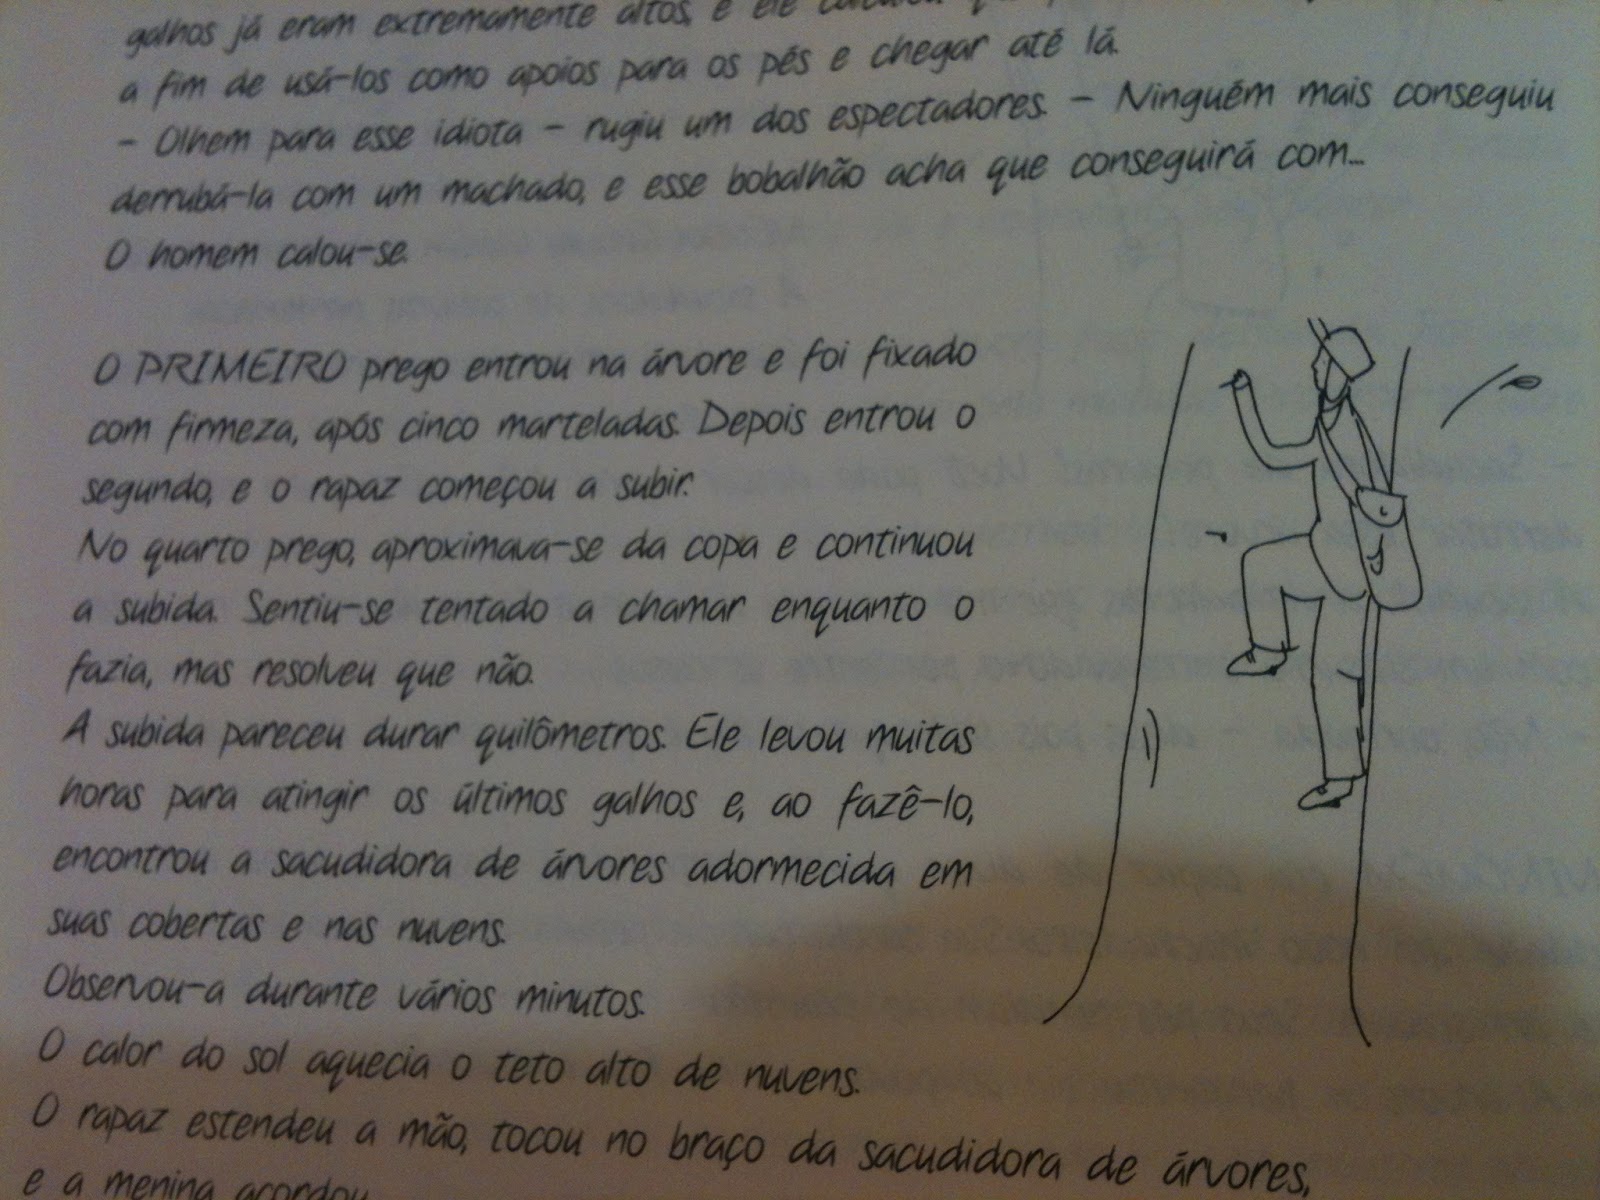 galhos já eram extremamente altos, e ele
a fim de usá-los como apoios para os pés e chegar até lá.
– Olhem para esse idiota – rugiu um dos espectadores. – Ninguém mais conseguiu
derrubá-la com um machado, e esse bobalhão acha que conseguirá com...
O homem calou-se.
O PRIMEIRO prego entrou na árvore e foi fixado
com firmeza, após cinco marteladas. Depois entrou o
segundo, e o rapaz começou a subir.
No quarto prego, aproximava-se da copa e continuou
a subida. Sentiu-se tentado a chamar enquanto o
fazia, mas resolveu que não.
A subida pareceu durar quilômetros. Ele levou muitas
horas para atingir os últimos galhos e, ao fazê-lo,
encontrou a sacudidora de árvores adormecida em
suas cobertas e nas nuvens.
Observou-a durante vários minutos.
O calor do sol aquecia o teto alto de nuvens.
O rapaz estendeu a mão, tocou no braço da sacudidora de árvores,
e a menina acordou.